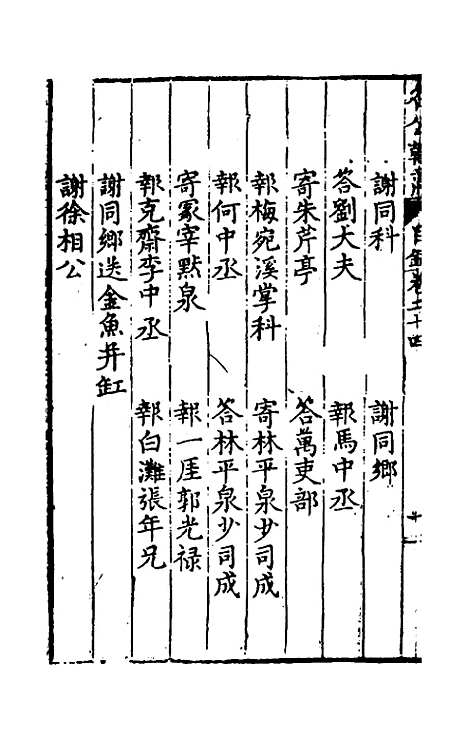 謝同科　謝同鄉
答劉大夫　報馬中丞
寄朱芹亭　答萬吏部
報梅宛溪掌科　寄林平泉少司成
報何中丞　答林平泉少司成
寄冢宰默泉　報一厓郭光祿
報克齋李中丞　報白灘張年兄
謝同鄉送金魚并缸
謝徐相公